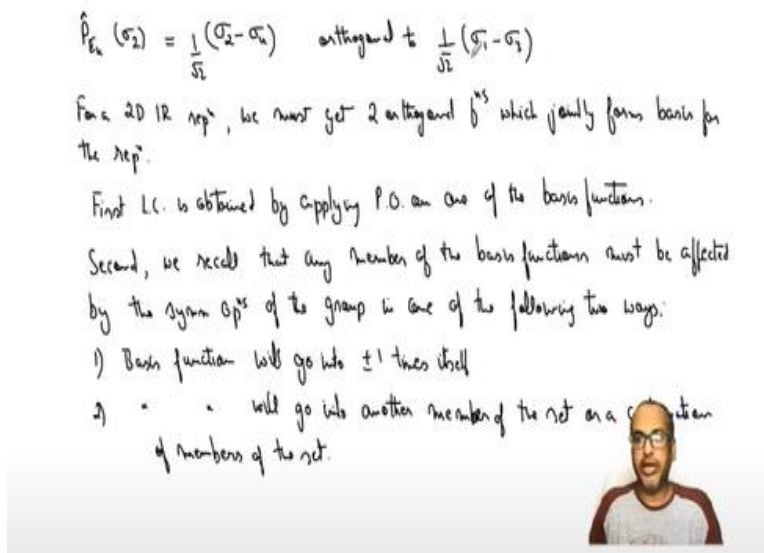 P̂_Eu (σ₂) = 1/√2 (σ₂ - σ₄) orthogonal to 1/√2 (σ₁ - σ₃)
For a 2D IR repⁿ, we must get 2 orthogonal fⁿˢ which jointly forms basis for
the repⁿ.
First L.C. is obtained by applying P.O. on one of the basis functions.
Second, we recall that any member of the basis functions must be affected
by the symm opⁿˢ of the group in one of the following two ways:
1) Basis function will go into ±1 times itself
2) " " will go into another member of the set or a
of members of the set.